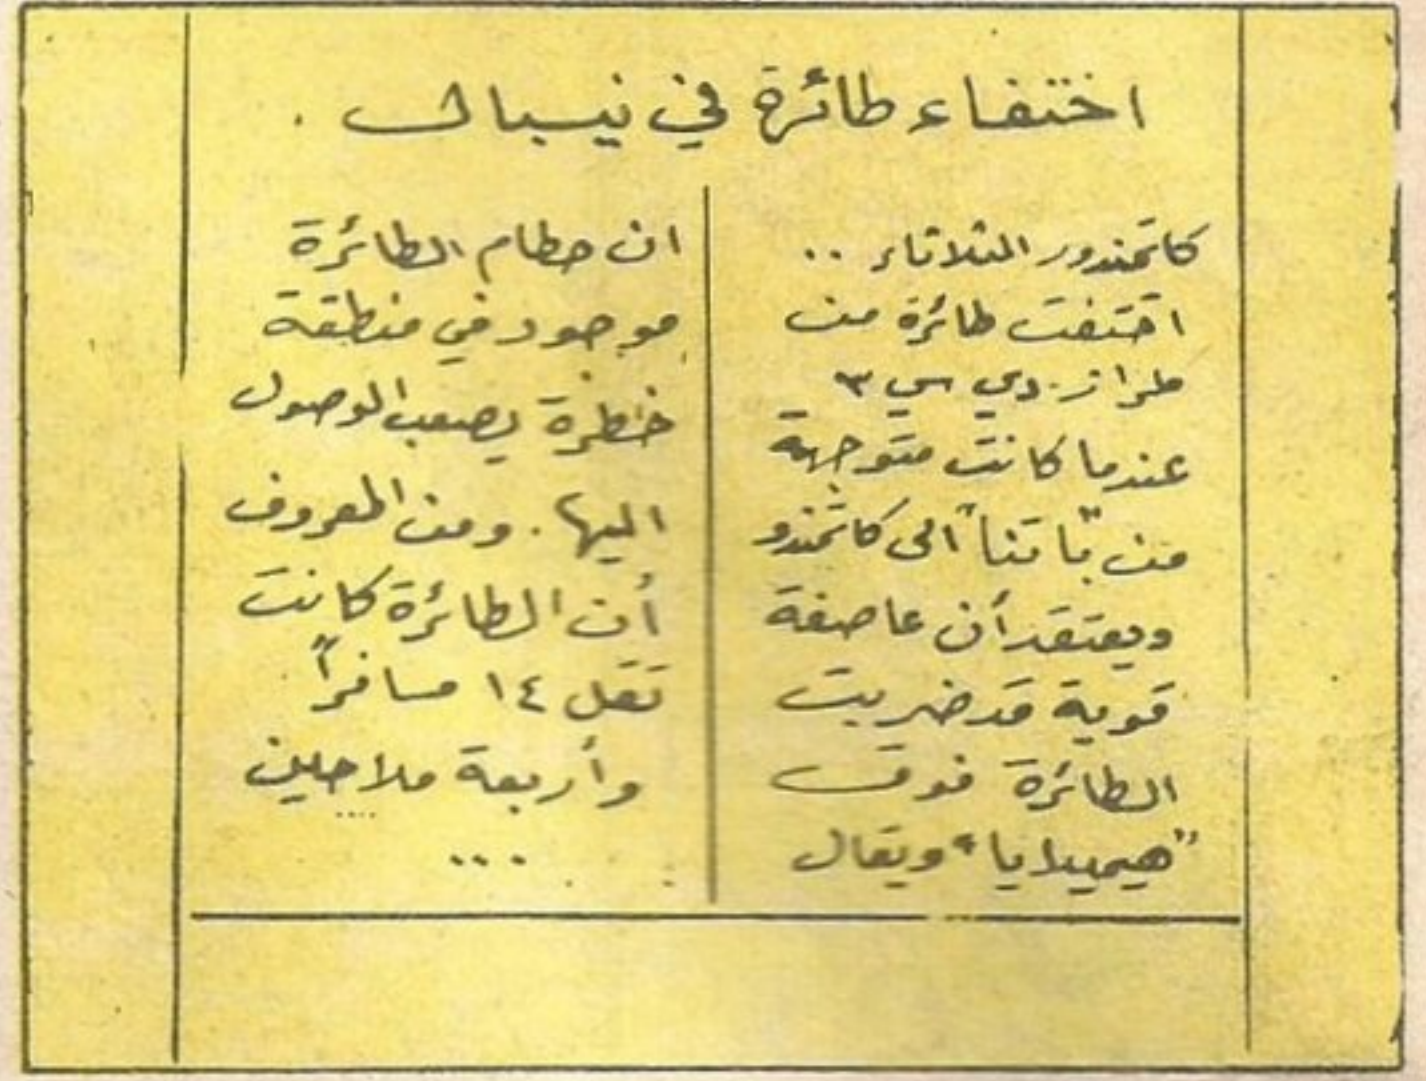 اختفاء طائرة في نيبال .
كاتمندور الثلاثاء ..
اختفت طائرة من
طراز . دي سي ٣
عندما كانت متوجهة
من "باتنا" الى كاتمندو
ويعتقد أن عاصفة
قوية قد ضربت
الطائرة فوق
"هيميلايا" ويقال
ان حطام الطائرة
موجود في منطقة
خطرة يصعب الوصول
اليها . ومن المعروف
أن الطائرة كانت
تقل ١٤ مسافراً
وأربعة ملاحين
...